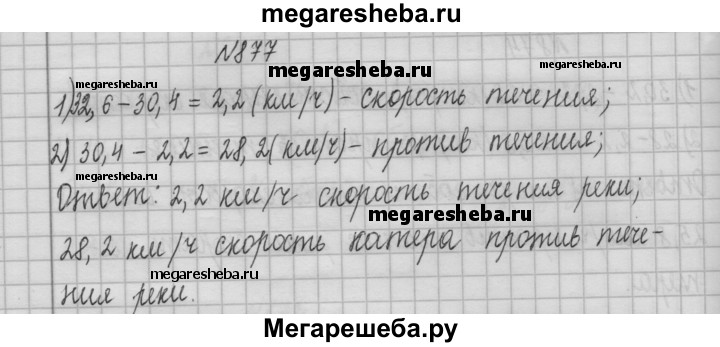 megaresheba.ru
№877
megaresheba.ru
megaresheba.ru
megaresheba.ru
1) 32,6 - 30,4 = 2,2 (км/ч) - скорость течения;
2) 30,4 - 2,2 = 28,2 (км/ч) - против течения;
megaresheba.ru
Ответ: 2,2 км/ч скорость течения реки;
megaresheba.ru
28,2 км/ч скорость катера против тече-
megaresheba.ru
ния реки.
Мегарешеба.ру